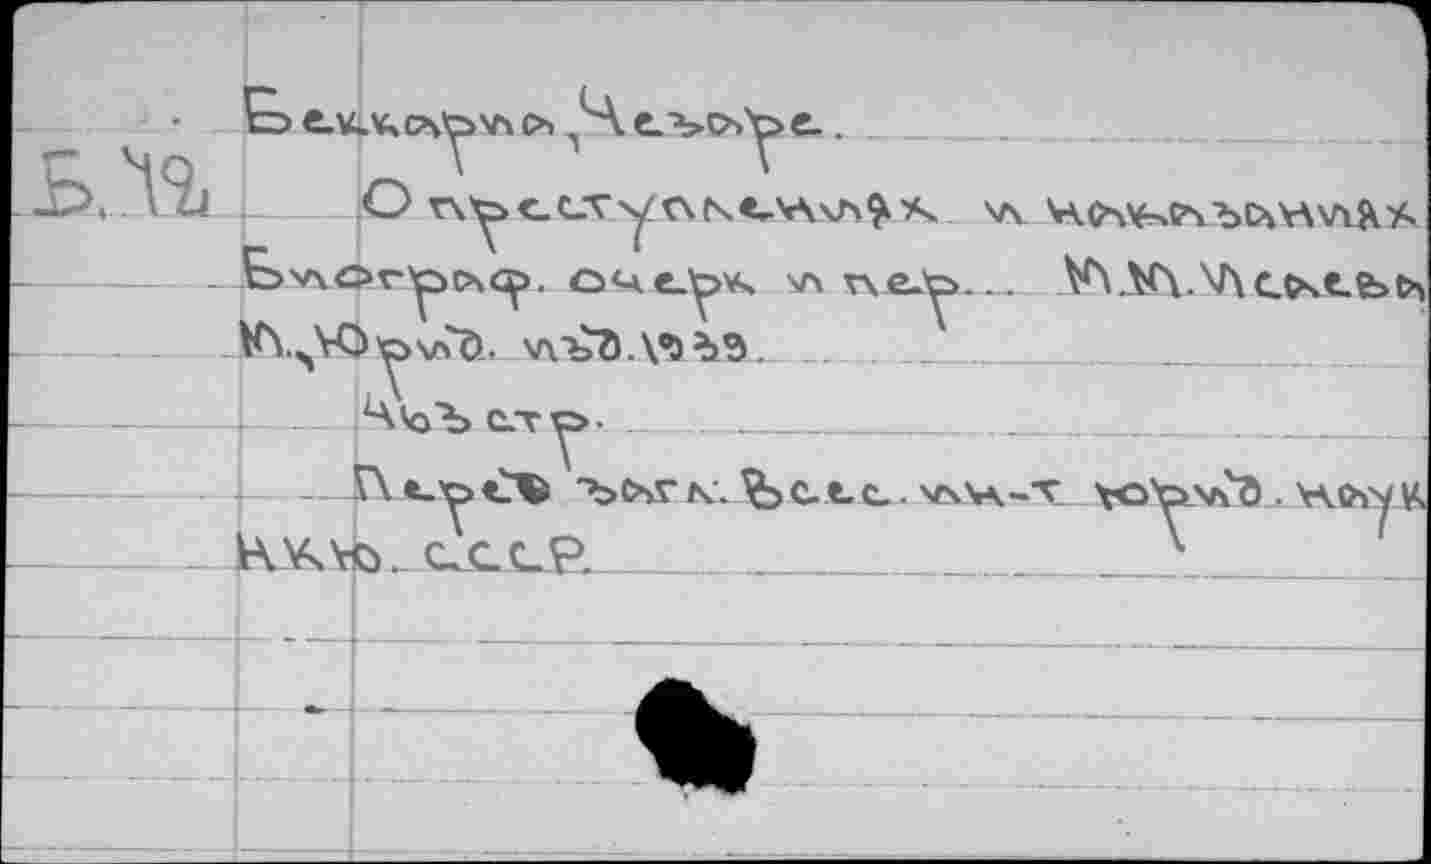 Беккариа, Чезаре.
Б. 42
О преступлениях и наказаниях
Биограф. очерк и пер. М.М. Исаева
М., Юрид. изд. 1939.
463 стр.
Перед загл: Всес. ин-т юрид. наук
НКЮ. СССР.